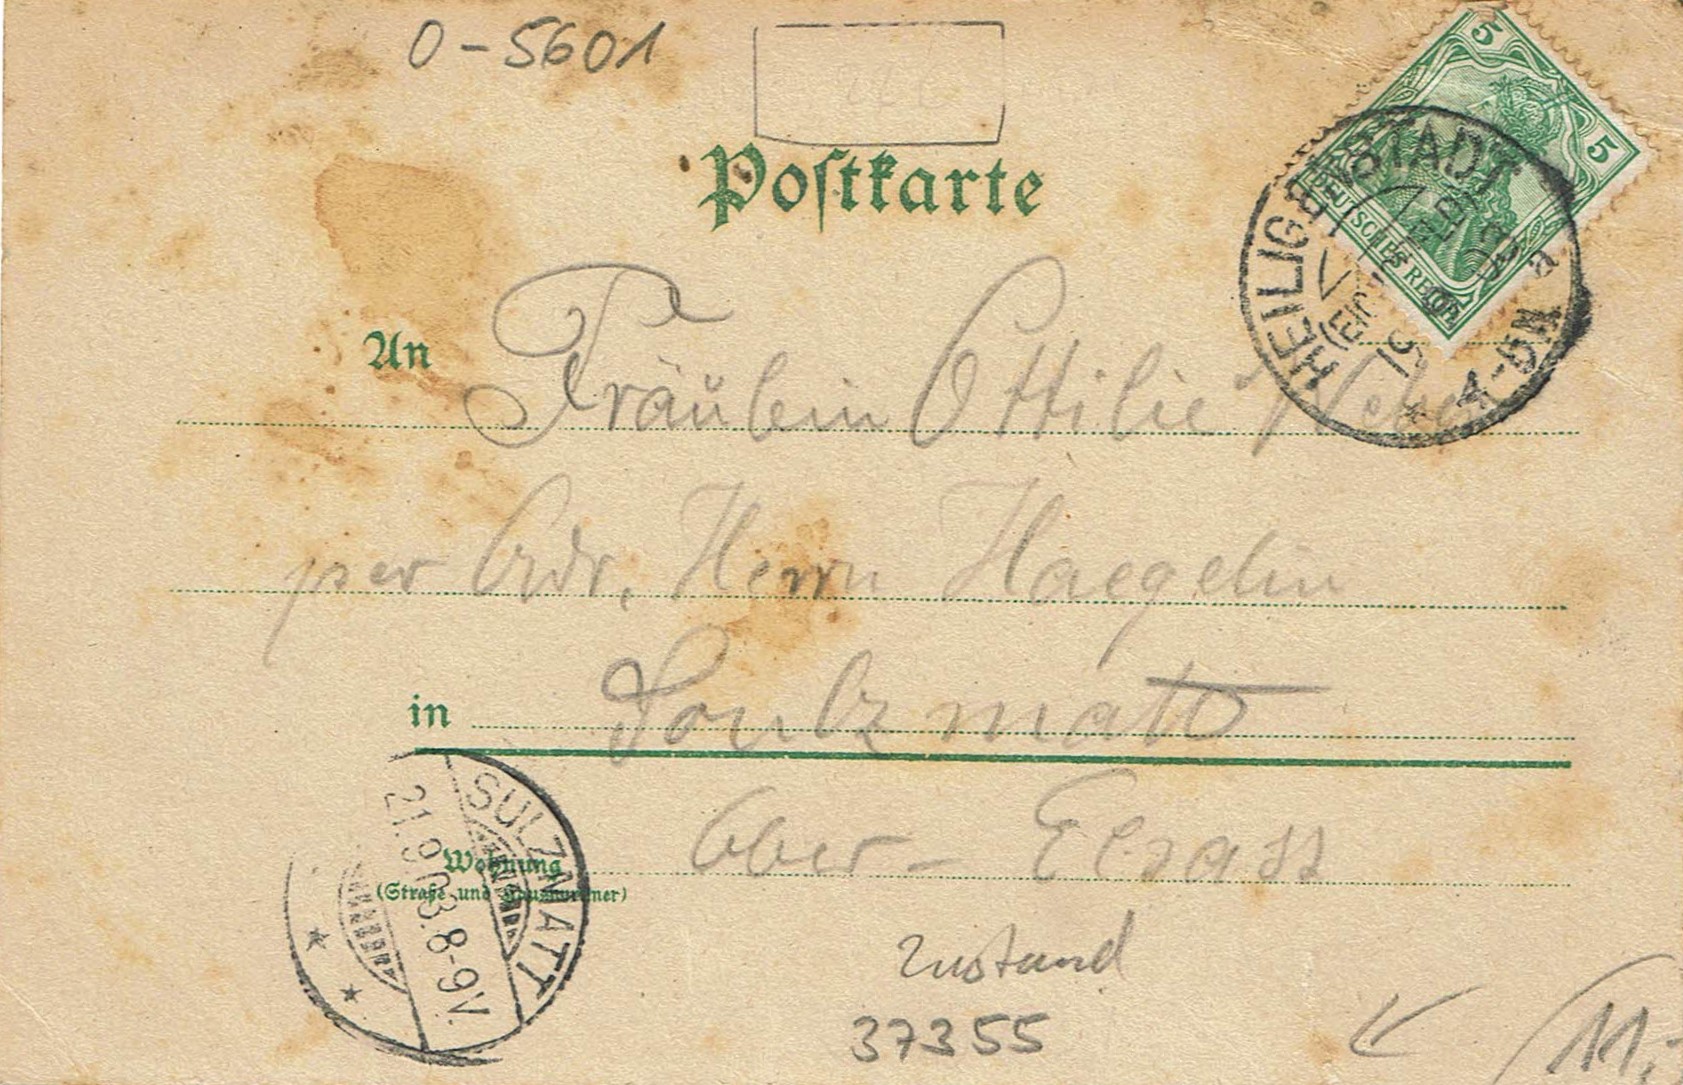 0-5601
Postkarte
5
5
DEUTSCHES REICH
HEILIGENSTADT
(EICHSFELD)
19 9 03
4-5N
a
An Fräulein Ottilie Weber
per Adr. Herrn Haegelin
in Soulzmatt
Ober-Elsass
Wohnung
(Straße und Hausnummer)
SULZMATT
21.9.03.8-9V.
Zustand
37355
11.-